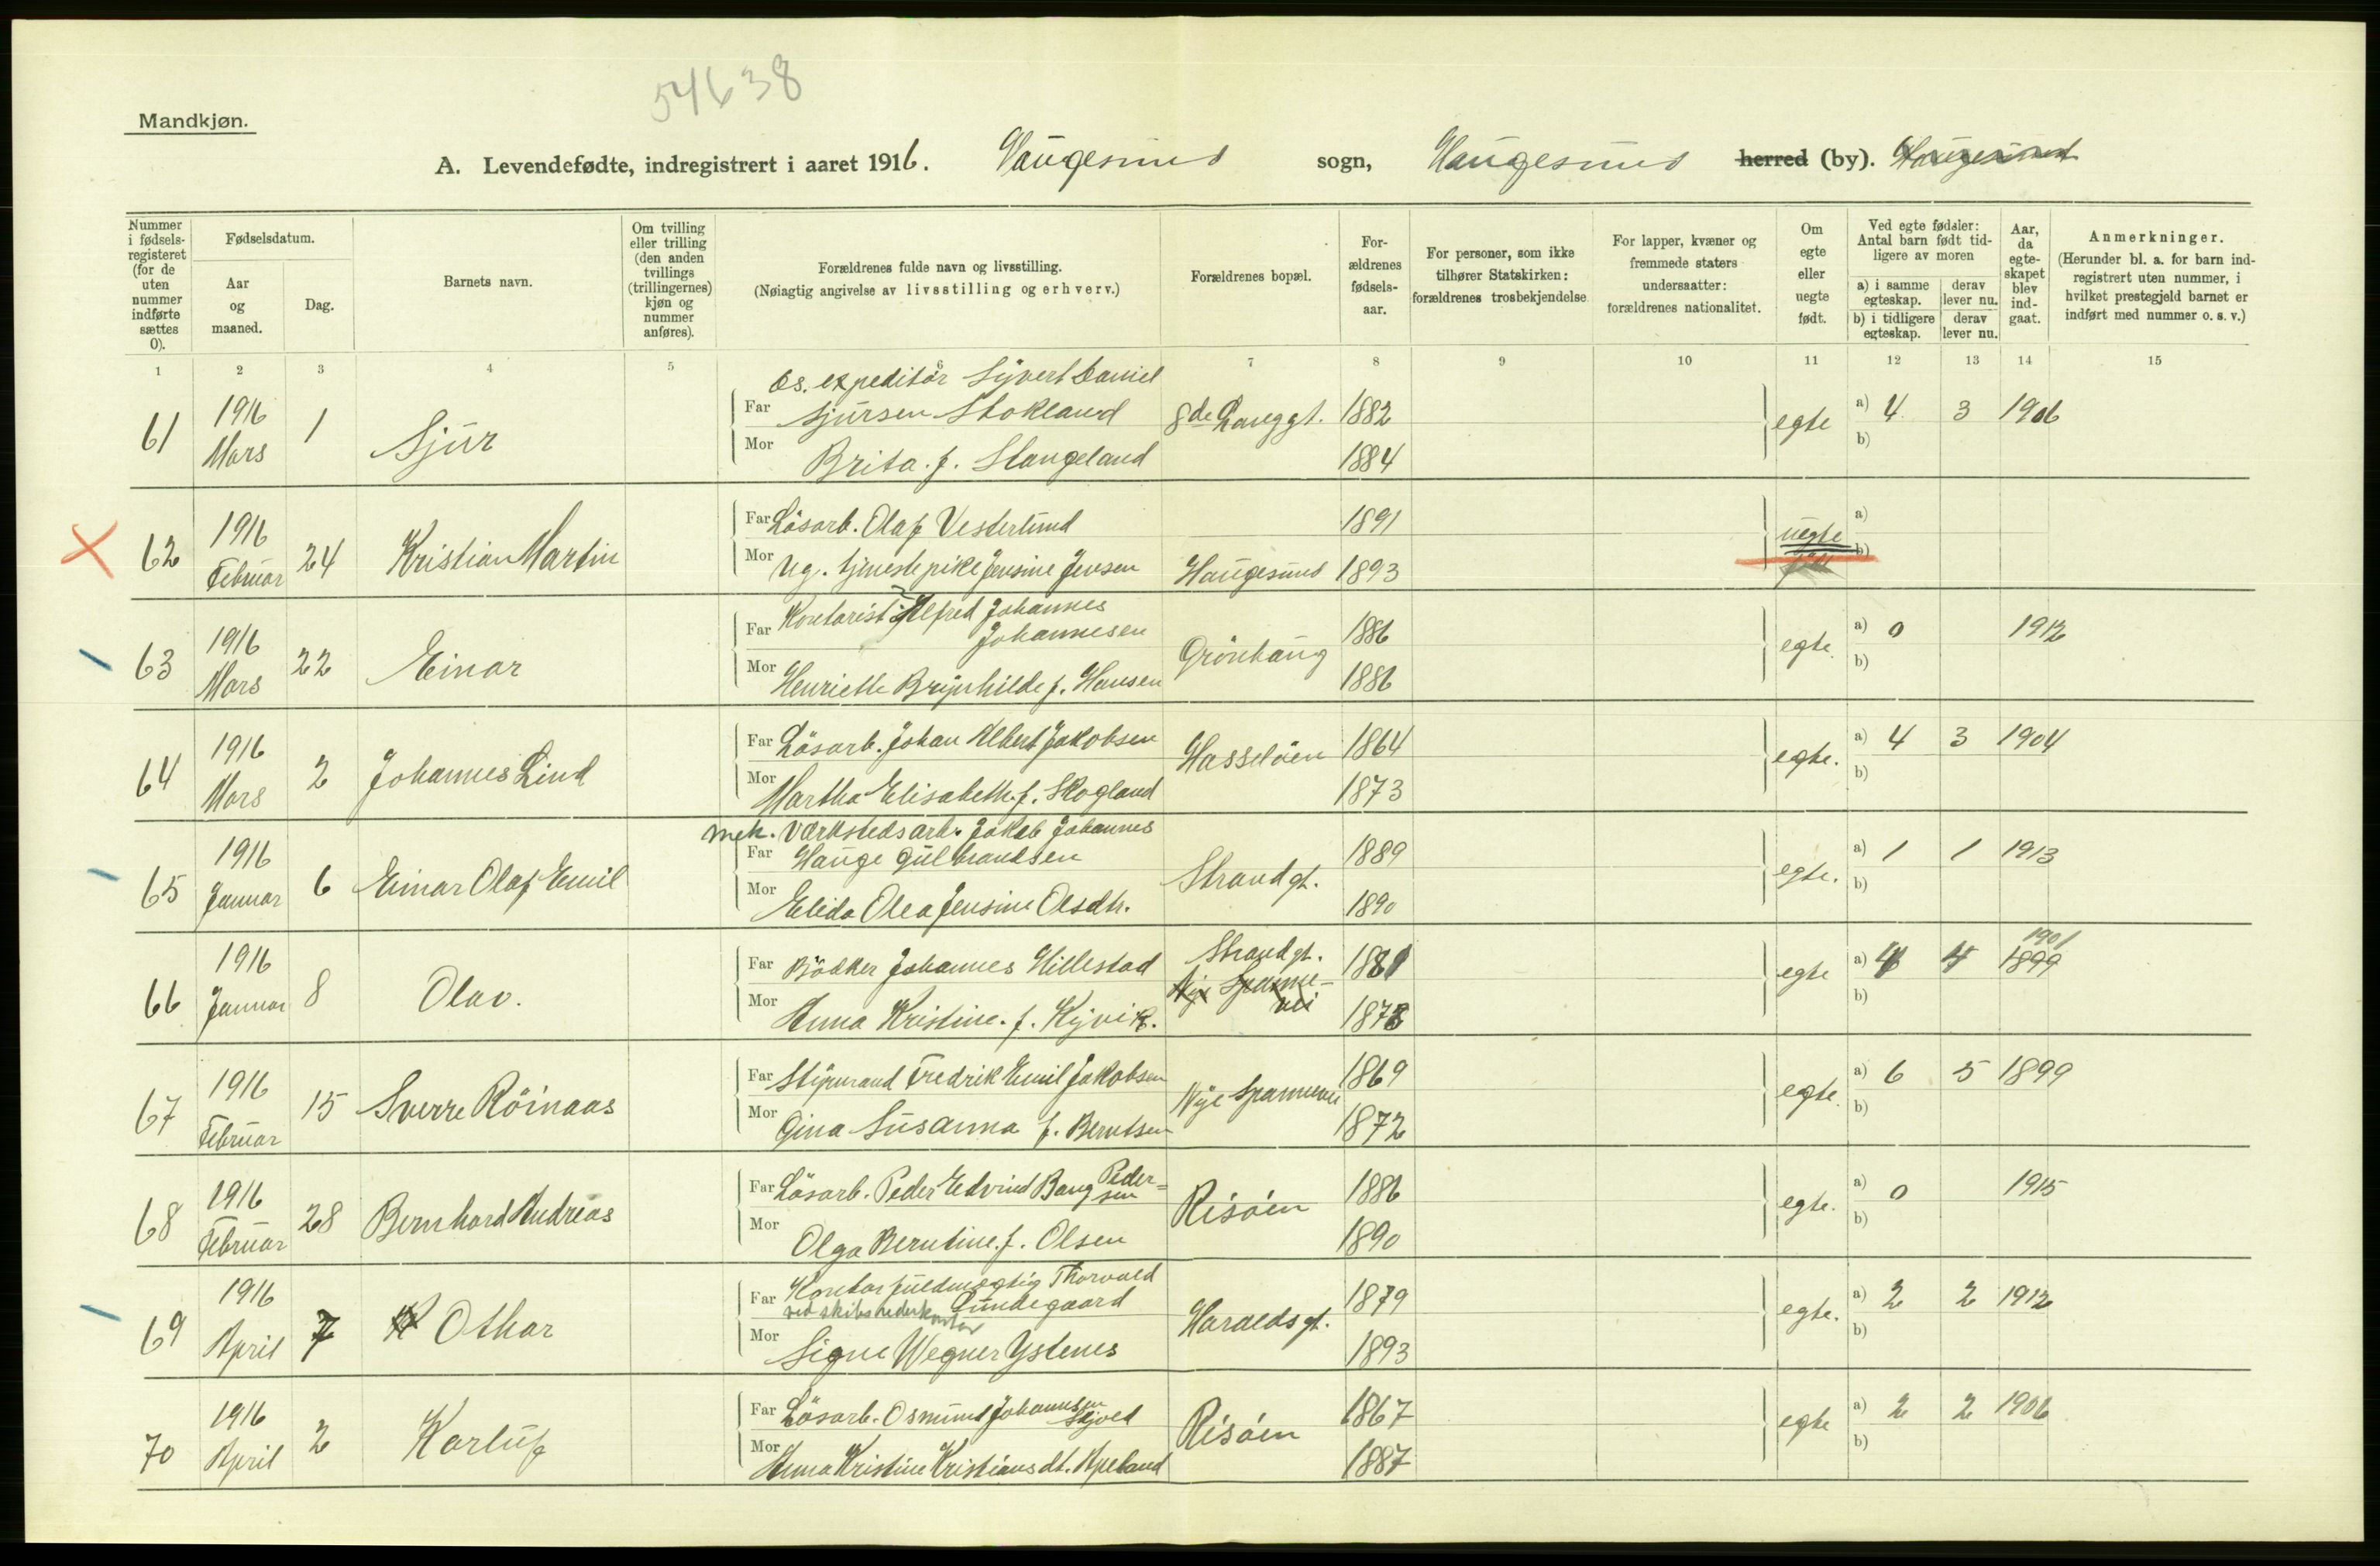 54638
Mandkjøn.
A. Levendefødte, indregistrert i aaret 1916. Haugesund sogn, Haugesund herred (by). Haugesund
Nummer i fødsels-registeret (for de uten nummer indførte sættes 0).
Fødselsdatum.
Aar og maaned.
Dag.
Barnets navn.
Om tvilling eller trilling (den anden tvillings (trillingernes) kjøn og nummer anføres).
Forældrenes fulde navn og livsstilling.
(Nøiagtig angivelse av livsstilling og erhverv.)
Forældrenes bopæl.
For-ældrenes fødsels-aar.
For personer, som ikke tilhører Statskirken: forældrenes trosbekjendelse
For lapper, kvæner og fremmede staters undersaatter: forældrenes nationalitet.
Om egte eller uegte født.
Ved egte fødsler: Antal barn født tid-ligere av moren
a) i samme egteskap.
derav lever nu.
b) i tidligere egteskap.
derav lever nu.
Aar, da egte-skapet blev ind-gaat.
Anmerkninger.
(Herunder bl. a. for barn ind-registrert uten nummer, i hvilket prestegjeld barnet er indført med nummer o. s. v.)
1 2 3 4 5 6 7 8 9 10 11 12 13 14 15
61 1916 Mars 1 Sjur
Ds. expeditør Sivert Daniel
Far Sjursen Stokland 8de Langgt. 1882 egte a) 4 3 1906
Mor Brita f. Stangeland 1884 b)
62 1916 Februar 24 Kristian Martin
Far Løsarb. Olaf Vesterlund 1891 uegte a)
Mor Ug. tjenestepike Jensine Jensen Haugesund 1893 b)
63 1916 Mars 22 Einar
Far Kontorist Alfred Johannes
Johannesen Grönhaug 1886 egte. a) 0 1912
Mor Henriette Brynhilde f. Hansen 1886 b)
64 1916 Mars 2 Johannes Lind
Far Løsarb. Johan Albert Jakobsen Hasseløen 1864 egte. a) 4 3 1904
Mor Martha Elisabeth f. Skogland 1873 b)
65 1916 Januar 6 Einar Olaf Emil
mek. Værkstedsarb. Jakob Johannes
Far Hauge Gulbrandsen Strandgt. 1889 egte. a) 1 1 1913
Mor Elida Olea Jensine Olsdtr. 1890 b)
66 1916 Januar 8 Olav.
Far Bödker Johannes Hillestad Strandgt. 1881 egte a) 4 4 1901 1899
Nye Spanne-vei
Mor Anna Kristine f. Kyvik. 1878 b)
67 1916 Februar 15 Sverre Röinaas
Far Styrmand Fredrik Emil Jakobsen Nye Spannevei 1869 egte. a) 6 5 1899
Mor Gina Susanna f. Berntsen 1872 b)
68 1916 Februar 28 Bernhard Andreas
Far Løsarb. Peder Edvind Bang Peder-sen Risöin 1886 egte. a) 0 1915
Mor Olga Berntine f. Olsen 1890 b)
69 1916 April 7 Othar
Far Kontorfuldmægtig Thorvald
ved skibsrederkontor Lundegaard Haraldsgt. 1879 egte. a) 2 2 1912
Mor Signe Wegner Ystenes 1893 b)
70 1916 April 2 Karluf
Far Løsarb. Osmund Johannesen Skjold Risöin 1867 egte a) 2 2 1906
Mor Anna Kristine Kristiansdt. Apeland 1887 b)